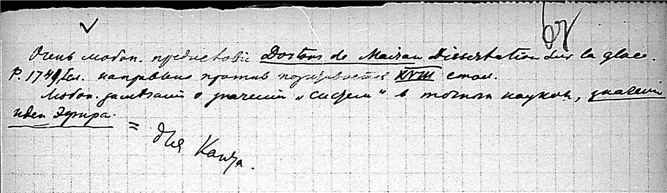 68
Очень любоп. предисловіе Dortous de Mairan Dissertation sur la glace.
P. 1749. направлено против XVIII стол.
Любоп. замѣчанія о значеніи „систем“ в точном науком, значеніи
идеи Эфира.
= для Канта.